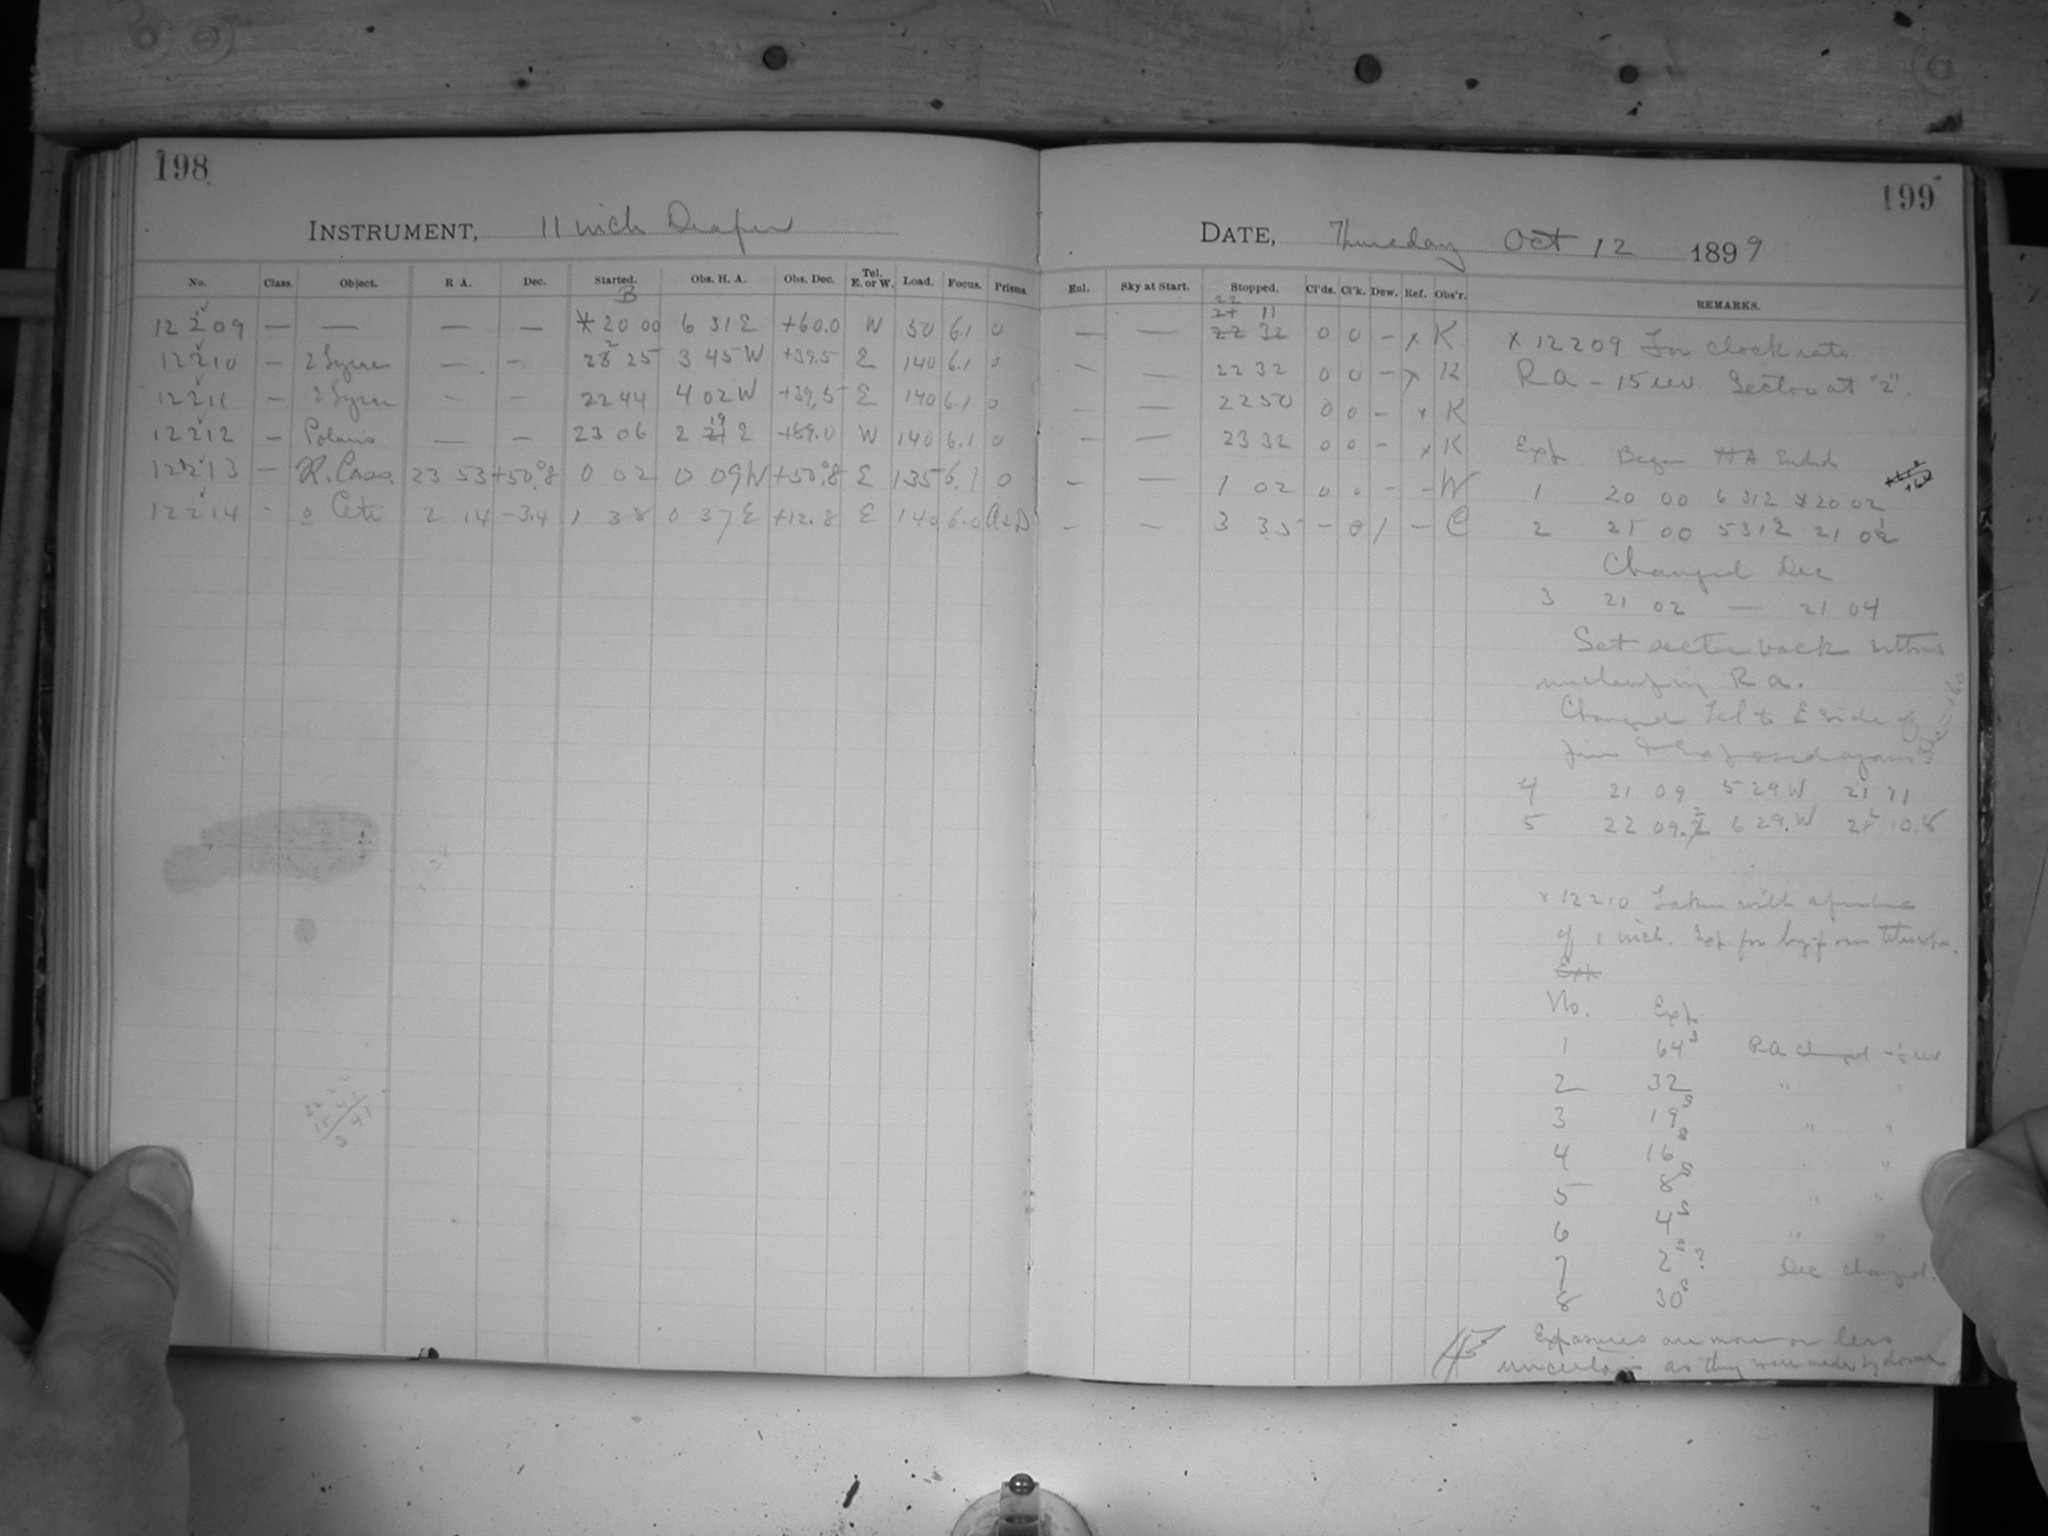 198
199
INSTRUMENT, 11 inch Draper
DATE, Thursday Oct 12 1899
No. Class. Object. R. A. Dec. Started. Obs. H. A. Obs. Dec. Tel. E. or W. Load. Focus. Prisms. Enl. Sky at Start. Stopped. Cl'ds. Cl'k. Dew. Ref. Obs'r. REMARKS.
12209 — — — — 20 00 6 31 E +60.0 W 50 6.1 0 — — 22 11 0 0 – x K
12210 – 2 Lyrae — – 22 25 3 45 W +39.5 E 140 6.1 0 – — 22 32 0 0 – x K
12211 – 2 Lyrae – – 22 44 4 02 W +39.5 E 140 6.1 0 – — 22 50 0 0 – x K
12212 – Polaris — – 23 06 2 19 E +89.0 W 140 6.1 0 – — 23 32 0 0 – x K
12213 – R. Cass. 23 53 +50°.8 0 02 0 09 W +50°.8 E 135 6.1 0 – — 1 02 0 0 – – W
12214 - o Ceti 2 14 -3.4 1 38 0 37 E +12.8 E 140 6.0 A+D – — 3 35 – 0 1 – C
x 12209 For clock rate.
R a – 15 rev Sector at "2".
Exp. Began HA Ended
1 20 00 6 31 E 20 02
2 21 00 5 31 E 21 02
Changed Dec
3 21 02 — 21 04
Set sector back without
unclamping R a.
Changed Tel to E side of
pier & Exposed again
4 21 09 5 29 W 21 11
5 22 09.2 6 29. W 22 10.8
x 12210 Taken with aperture
of 1 inch. Exp for telescope.
Exp
No. Exp.
1 64s RA changed -½ rev
2 32 " "
3 19s " "
4 16s " "
5 8s " "
6 4s " "
7 2s ? Dec changed.
8 30s
Exposures are more or less
uncertain as they were made by